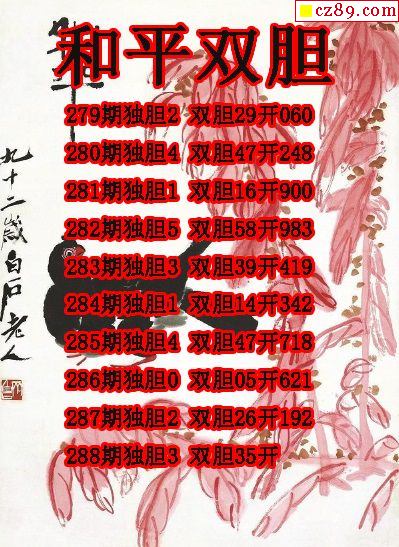 cz89.com
和平双胆
279期独胆2 双胆29开060
280期独胆4 双胆47开248
281期独胆1 双胆16开900
282期独胆5 双胆58开983
283期独胆3 双胆39开419
284期独胆1 双胆14开342
285期独胆4 双胆47开718
286期独胆0 双胆05开621
287期独胆2 双胆26开192
288期独胆3 双胆35开
九十二歲白石老人